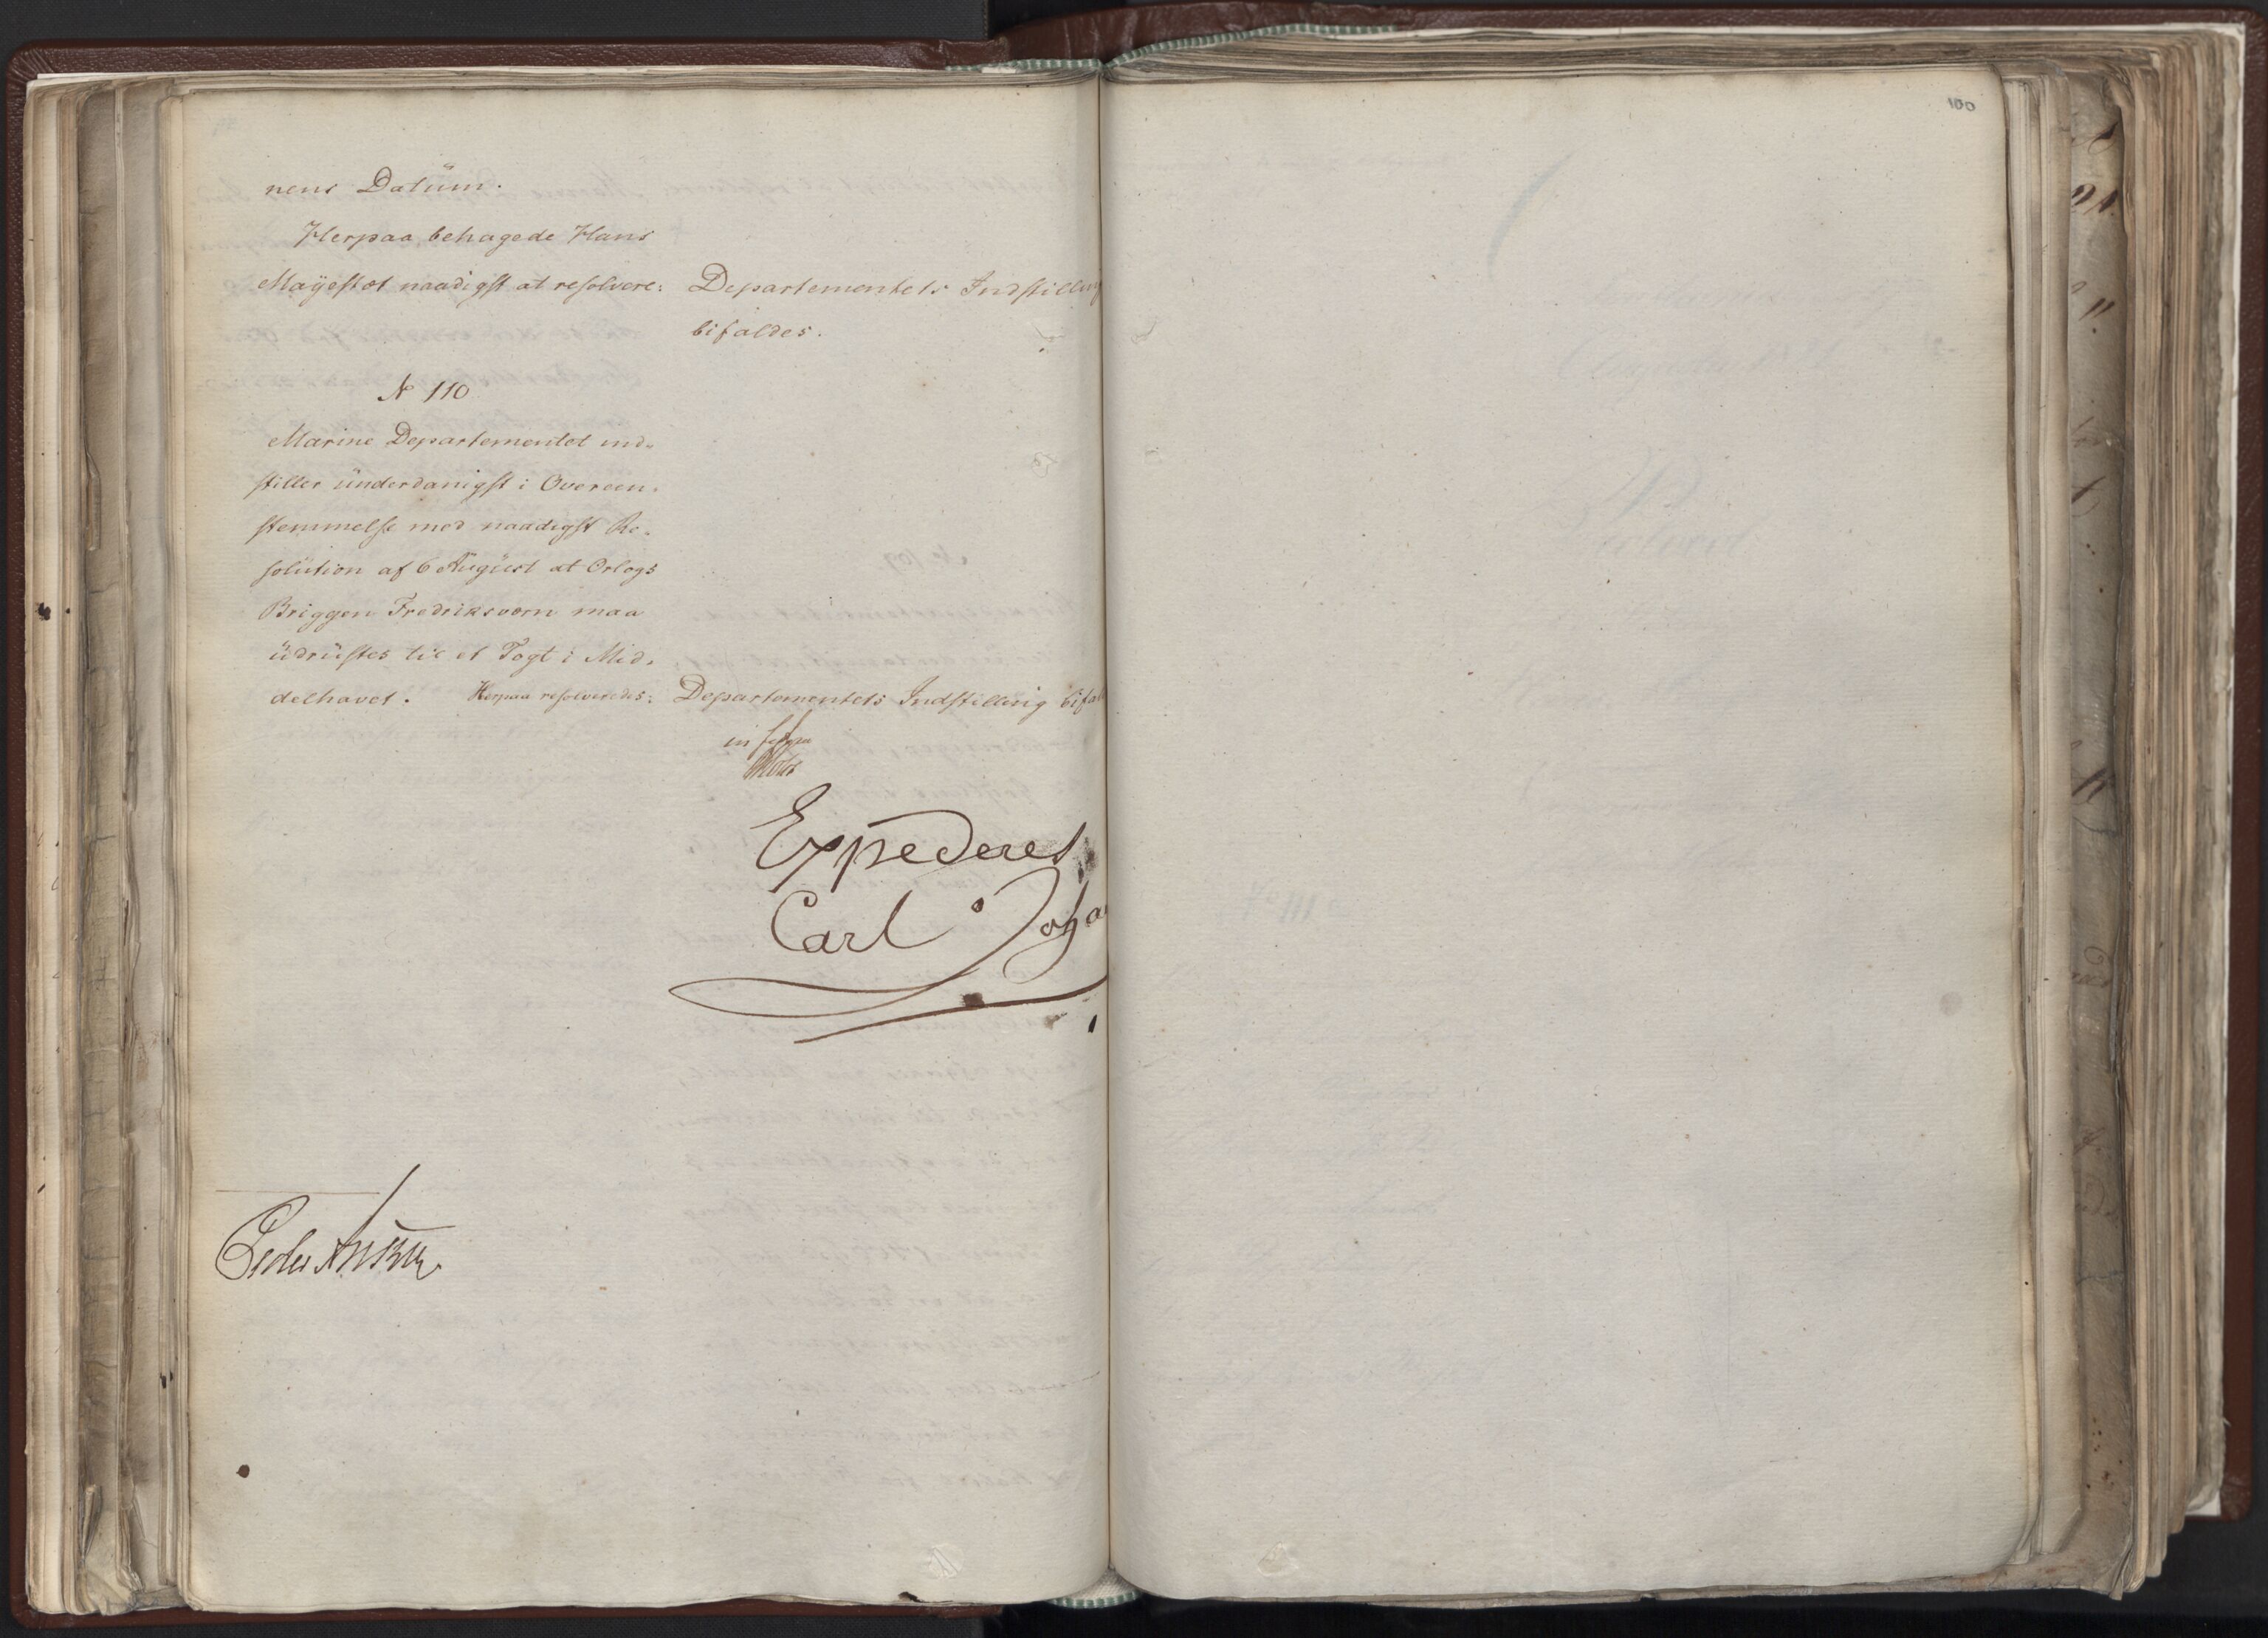 100
nens Datüm.
Herpaa behagede Hans
Mayestæt naadigst at resolvere: Departementets Indstilling
bifaldes.
N 110
Marine Departementet ind-
stiller ünderdanigst i Overeen-
stemmelse med naadigst Re-
solütion af 6 Aügüst at Orlogs
Briggen Fredriksværn maa
üdrüstes til et Togt i Mid-
delhavet. Herpaa resolveredes: Departementets Indstilling bifal
Expederes
Carl Johan
Peder Anker